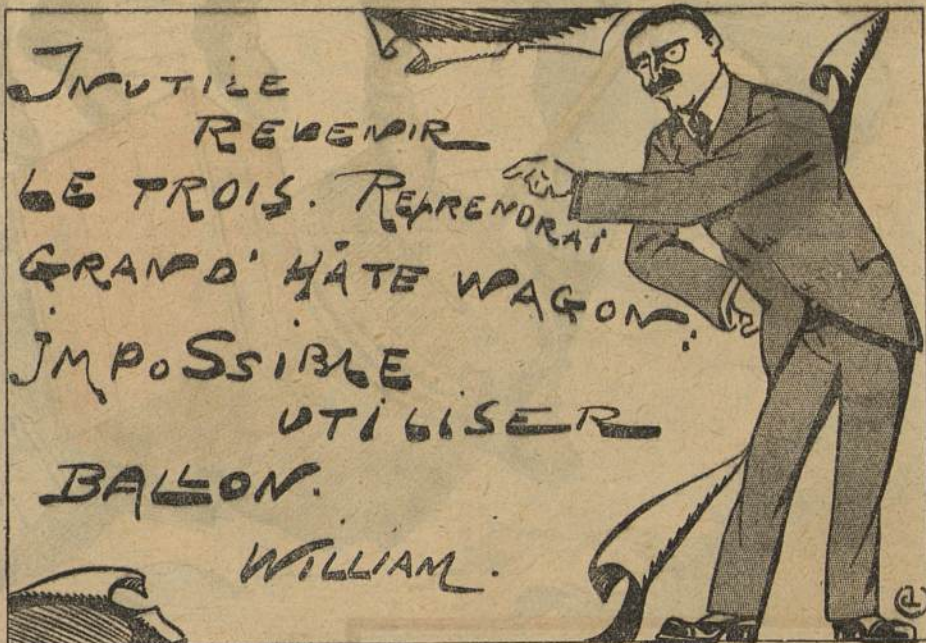 INUTILE
REVENIR
LE TROIS. REPRENDRAI
GRAND' HÂTE WAGON;
IMPOSSIBLE
UTILISER
BALLON.
WILLIAM.
1